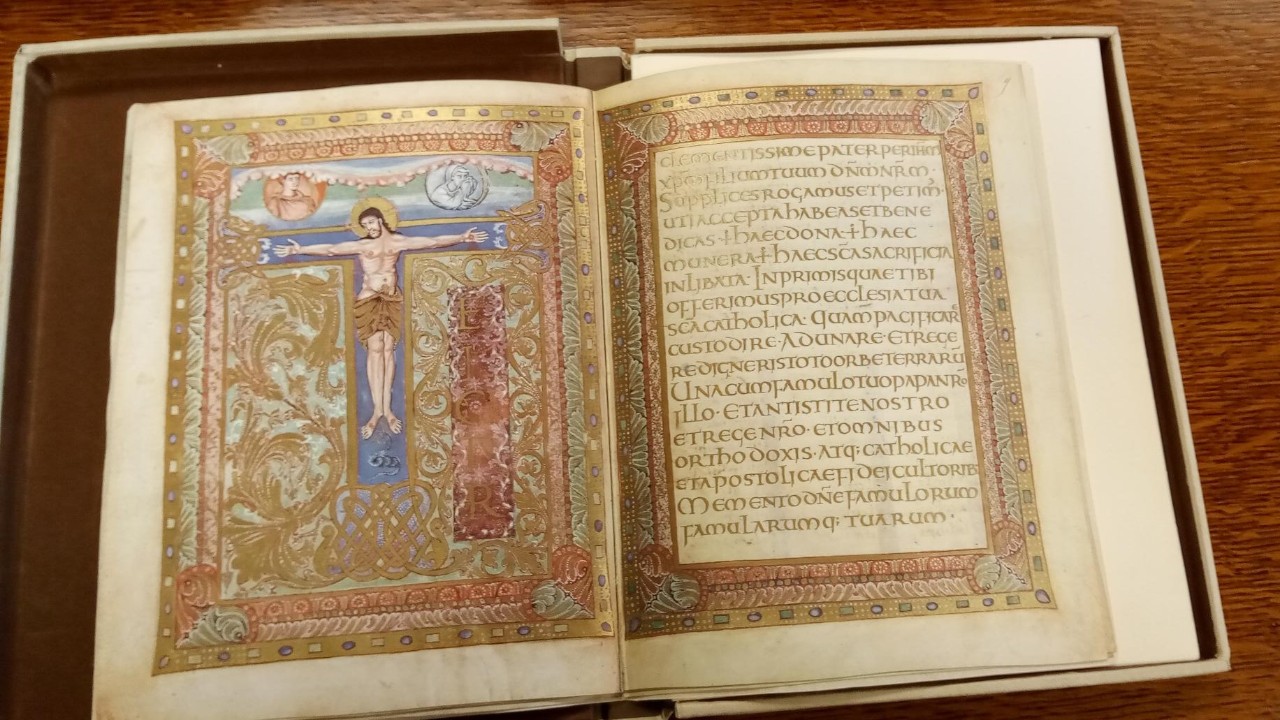 TE
IGITUR
CLEMENTISSIME PATER PER IHM
XPM FILIUM TUUM DÑM NRM ·
SUPPLICES ROGAMUS ET PETIM·
UTI ACCEPTA HABEAS ET BENE
DICAS · ✝ HAEC DONA · ✝ HAEC
MUNERA ✝ HAEC SC̄A SACRIFICIA
INLIBATA · IN PRIMIS QUAE TIBI
OFFERIMUS PRO ECCLESIA TUA
SCA CATHOLICA · QUAM PACIFICAR
CUSTODIRE · ADUNARE · ET REGE
RE DIGNERIS TOTO ORBE TERRARŪ
UNA CUM FAMULO TUO PAPA NRO
ILLO · ET ANTISTITE NOSTRO
ET REGE NR̄O · ET OMNIBUS
ORTHODOXIS · ATQ; CATHOLICAE
ET APOSTOLICAE FIDEI CULTORIB
MEMENTO DÑE FAMULORUM
FAMULARUMQ; TUARUM ·